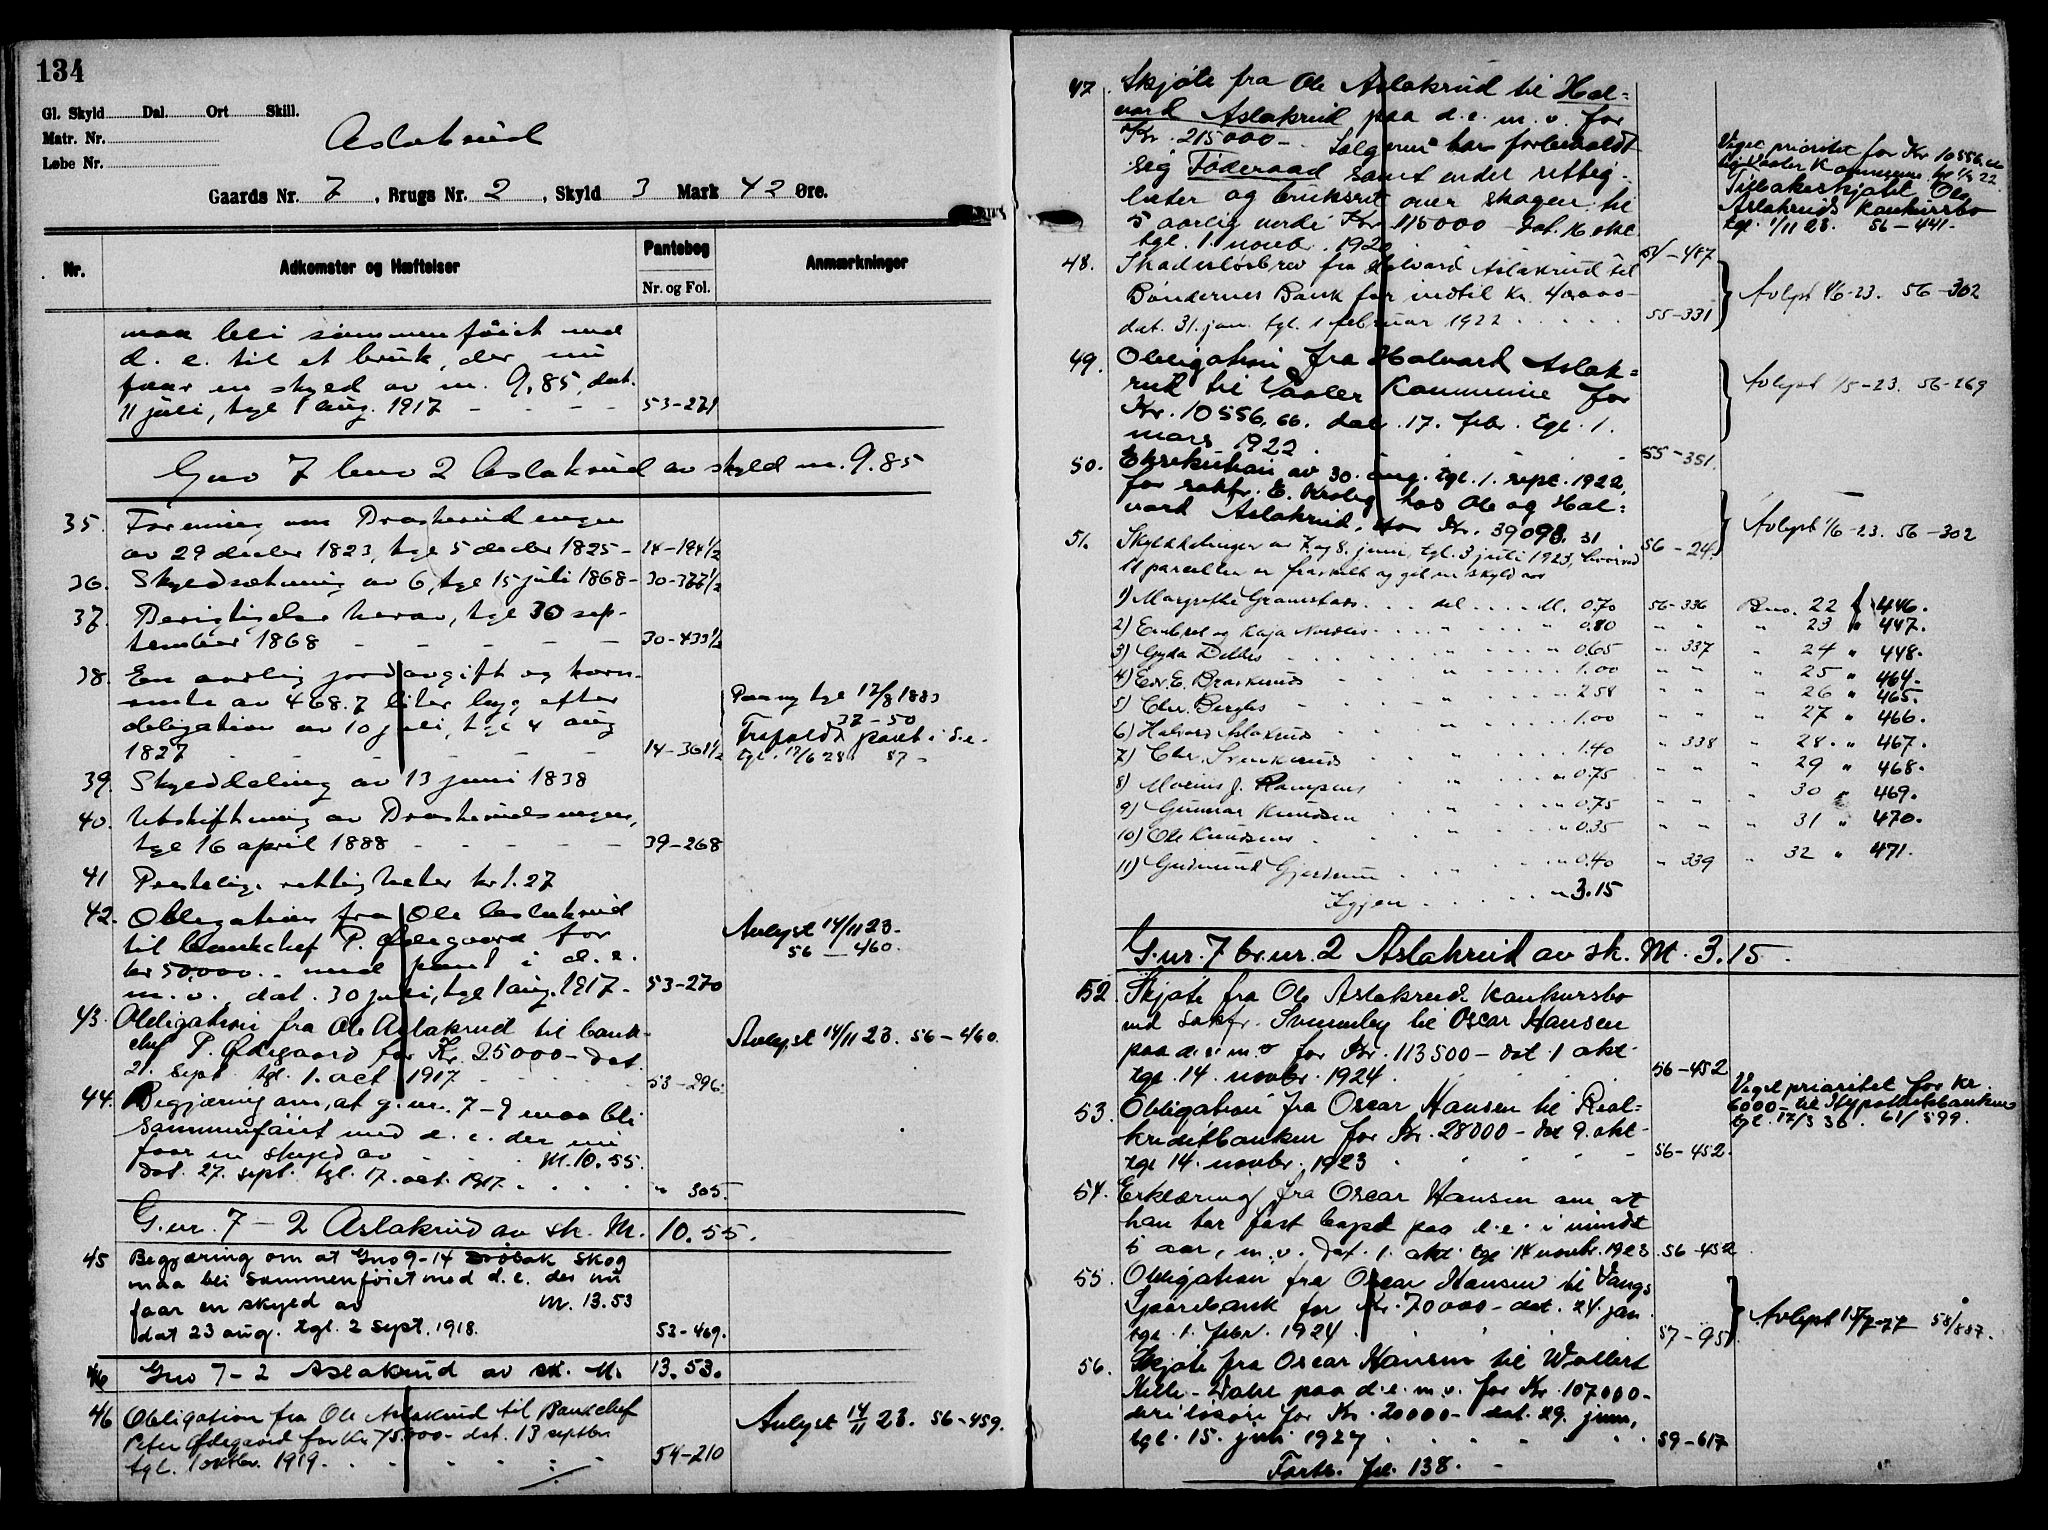 134
Gl. Skyld Dal. Ort Skill.
Matr. Nr.
Løbe Nr.
Aslakrud
Gaards Nr. 7, Brugs Nr. 2, Skyld 3 Mark 42 Øre.
Nr. Adkomster og Hæftelser Pantebog Anmærkninger
Nr. og Fol.
maa bli sammenføiet med
d. e. til et bruk, der nu
faar en skyld av m. 9,85, dat.
11 juli, tgl 1 aug. 1917 - - - - 53-271
Gno 7 bno 2 Aslakrud av skyld m. 9.85
35. Forening om Braskerudengen
av 29 decbr 1823, tgl 5 decbr 1825 - 14-194 1/2
36. Skyldsætning av 6, tgl 15 juli 1868 - 30-377 1/2
37. Berigtigelse herav, tgl 30 sep-
tember 1868 - - - - - 30-433 1/2
38. En aarlig jordavgift og korn-
rente av 468.7 liter byg efter
obligation av 10 juli, tgl 4 aug
1827 - - - 14-361 1/2
Paany tgl 17/8 1883
37-50
Frafaldt pant i d.e.
tgl. 12/6 28 87 -
39. Skylddeling av 13 juni 1838
40. Utskiftning av Braskerudsengen,
tgl 16 april 1888 - - - - - 39-268
41 Prestelig. rettigheter kr 1.27
42. Obligation fra Ole Aslakrud
til bankchef P. Ødegaard for
kr 50,000.. med pant i d. e.
m. v. dat. 30 juli, tgl 1 aug. 1917 - 53-270
Avlyst 14/11 23 -
56 - 460.
43. Obligation fra Ole Aslakrud til bank-
chef P. Ødegaard for Kr. 25000- dat
21. sept tgl. 1. oct 1917 - - - - 53-296.
Avlyst 14/11 23. 56-460.
44. Begjæring om, at g.nr. 7-9 maa bli
sammenføiet med d. e. der nu
faar en skyld av M. 10.55.
dat. 27. sept. tgl. 17. oct. 1917. " 305.
G.nr. 7-2 Aslakrud av sk. M. 10.55.
45 Begjæring om at Gno 9-14 skog
maa bli sammenføiet med d.e. der nu
faar en skyld av M. 13.53
dat 23 aug. tgl. 2 sept. 1918. 53-469.
Gno 7-2 Aslakrud av sk. M. 13.53.
46 Obligation fra Ole Aslakrud til Bankchef
Peter Ødegaard for Kr. 75.000- dat. 13 septbr
tgl. 1 oktbr. 1919. 54-210
Avlyst 14/11 23. 56-459.
47. Skjøte fra Ole Aslakrud til Hal=
vard Aslakrud paa d.e. m.v. for
Kr. 215000 - Sælgeren har forbeholdt
sig Føderaad samt andre rettig-
heter og bruksret over skogen til
5 aarlig verdi Kr. 115000 dat. 16 okt
tgl. 1. novbr. 1920 51-487
Viget prioritet for Kr 10556,66
til Vaaler Kommune
Tilbakeskjøtet Ole
Aslakruds Konkursbo
tgl. 1/11 23. 56-441.
48. Skadesløsbrev fra Halvard Aslakrud til
Bøndernes Bank for indtil Kr. 40000-
dat. 31. jan. tgl. 1 februar 1922 55-331
Avlyst 1/6-23. 56-302
49. Obligation fra Halvard Aslak=
rud til Vaaler Kommune for
Kr. 10556,66. dat. 17. febr. tgl. 1.
mars 1922. 55-351.
Avlyst 1/5-23. 56-269
50. Eksekution av 30. aug. tgl. 1. sept. 1922
for sakfr. E. Krolig hos Ole og Hal=
vard Aslakrud, for Kr. 39098.31 56-24
Avlyst 1/6-23. 56-302
51. Skylddelinger av 7 og 8. juni, tgl. 3 juli 1923, hvorved
11 parceller er fraskilt og git en skyld av
1) Margrethe Gramstad . . . del . . . M. 0.70 56-336 Bno. 22 f 446.
2) Embret og Kaja Nordlis . . . " . . . " 0.80 " " " 23 " 447.
3) Gyda Dobles . . . " . . . " 0.65 " 337 " 24 " 448.
4) Edv. E. Braskeruds . . . " 1.00 " " " 25 " 464.
5) Chr. Berglis . . . " 2.58 " " " 26 " 465.
6) Halvard Aslakruds . . . " 1.00 " " " 27 " 466.
7) Chr. . . . " 1.40 " 338 " 28. " 467.
8) Marius J. . . . " 0.75 " " " 29 " 468.
9) Gunnar Knudsen . . . " 0.75 " " " 30 " 469.
10) Ole Knudsens . . . " 0.35 " " " 31 " 470.
11) Gudmund Gjerdrum . . . " 0.40 " 339 " 32 " 471.
Igjen . . . " 3.15
G.nr. 7 br.nr. 2 Aslakrud av sk. M. 3.15.
52 Skjøte fra Ole Aslakrud Konkursbo
ved sakfr. Svenneby til Oscar Hansen
paa d.e. m.v for Kr. 113500 - dat 1 okt.
tgl. 14. novbr. 1924. 56-452
53. Obligation fra Oscar Hansen til Real=
kreditbanken for Kr. 28000 - dat 9. okt-
tgl 14. novbr. 1923 56-452.
Viget prioritet for kr.
6000- til Hypothekbanken
tgl. 17/3 36. 61/599.
54. Erklæring fra Oscar Hansen om at
han tar fast bopæl paa d.e. i mindst
5 aar, m.v. dat. 1. okt. tgl 14 novbr. 1923 56-452
55. Obligation fra Oscar Hansen til Vangs
Sparebank for Kr. 70000 - dat. 24. jan.
tgl. 1. febr. 1924. 57-95
Avlyst 15/7-27 58/887.
56. Skjøte fra Oscar Hansen til Wollert
Hille-Dahl paa d.e. m.v. for Kr. 107000-
deri løsøre for Kr. 20000- dat. 29. juni,
tgl. 15. juli 1927 59-617
Forts. fol. 138. -